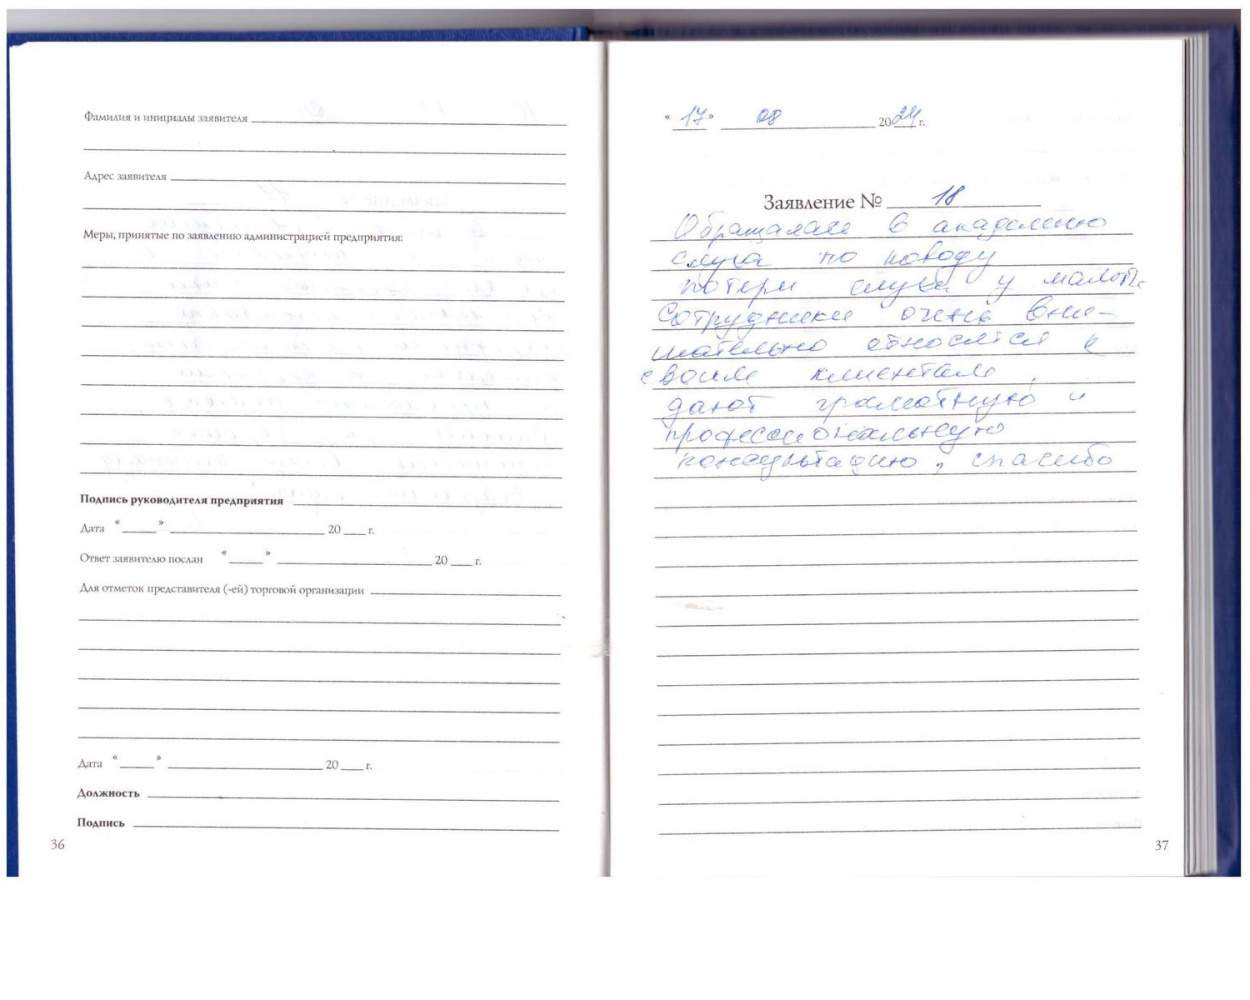 Фамилия и инициалы заявителя
Адрес заявителя
Меры, принятые по заявлению администрацией предприятия:
Подпись руководителя предприятия
Дата " " 20 г.
Ответ заявителю послан " " 20 г.
Для отметок представителя (-ей) торговой организации
Дата " " 20 г.
Должность
Подпись
36
"17" 08 2024 г.
Заявление № 18
Обращалась в академию
слуха по поводу
потери слуха у
Сотрудники очень вни-
мательно относятся к
своим клиентам,
дают грамотную и
профессиональную
консультацию, спасибо
37